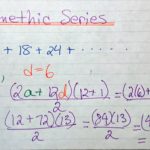 methic Series
+ 18 + 24 + · · · · · ·
d=6
(2a+12d)(12+1) = (2(6)+
2
(12+72)(13) = (84)(13) = (4
2 2